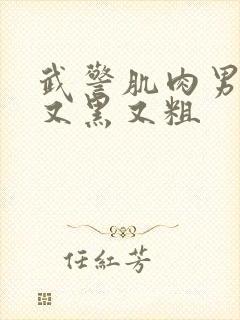 武警肌肉男
又黑又粗
任紅芳